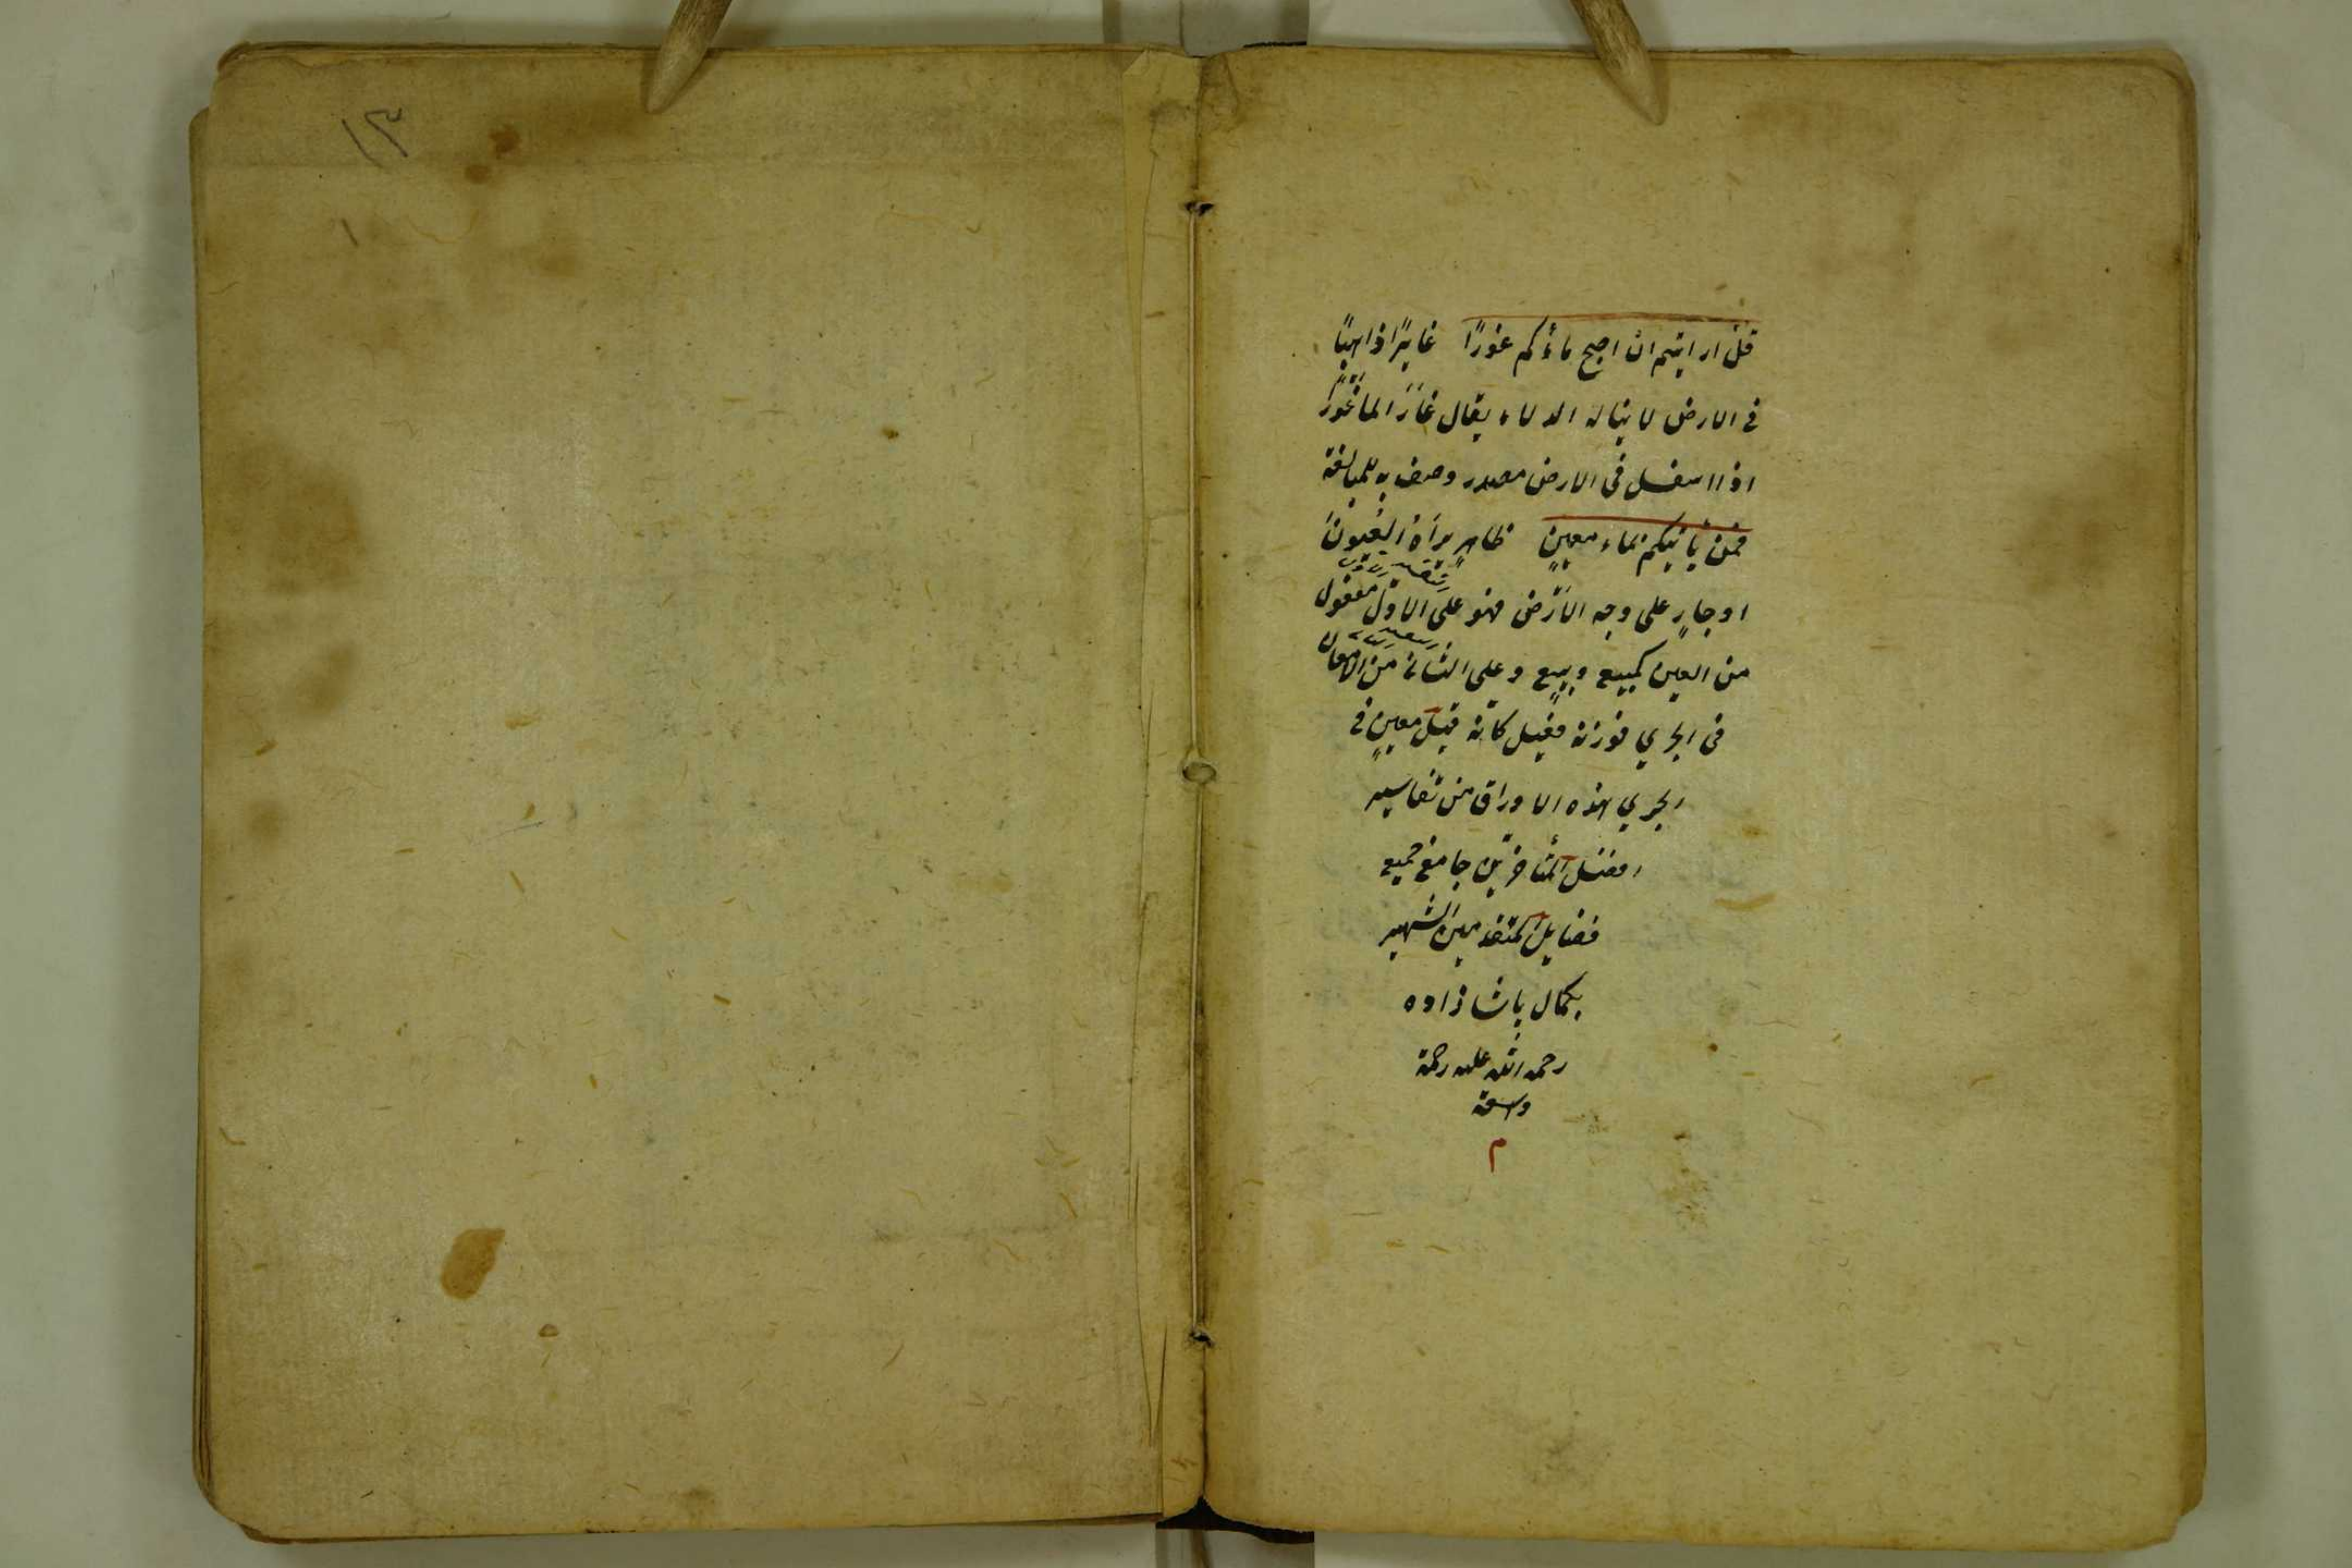 قل ارايتم ان اصبح ماؤكم غورًا غايرًا ذاهبًا
فى الارض لا يناله الدلاء يقال غَارَ الما غَوْرًا
اذا اسفل فى الارض مصدر وصف به للمبالغة
فمن يأتيكم بماء معينٍ ظاهرٍ يراه العيون
او جارٍ على وجه الارض فهو على الاول مفعول
من العين كمبيع وبيع وعلى الثانى من الامعان
فى الجري فوزنه فعيل كانه قيل معينٍ فى
الجري هذه الاوراق من تفاسير
افضل المتأخرين جامع جميع
فضايل المتقدمين الشهير
بكمال پاشا زاده
رحمه الله عليه رحمة
واسعة
م
١٣